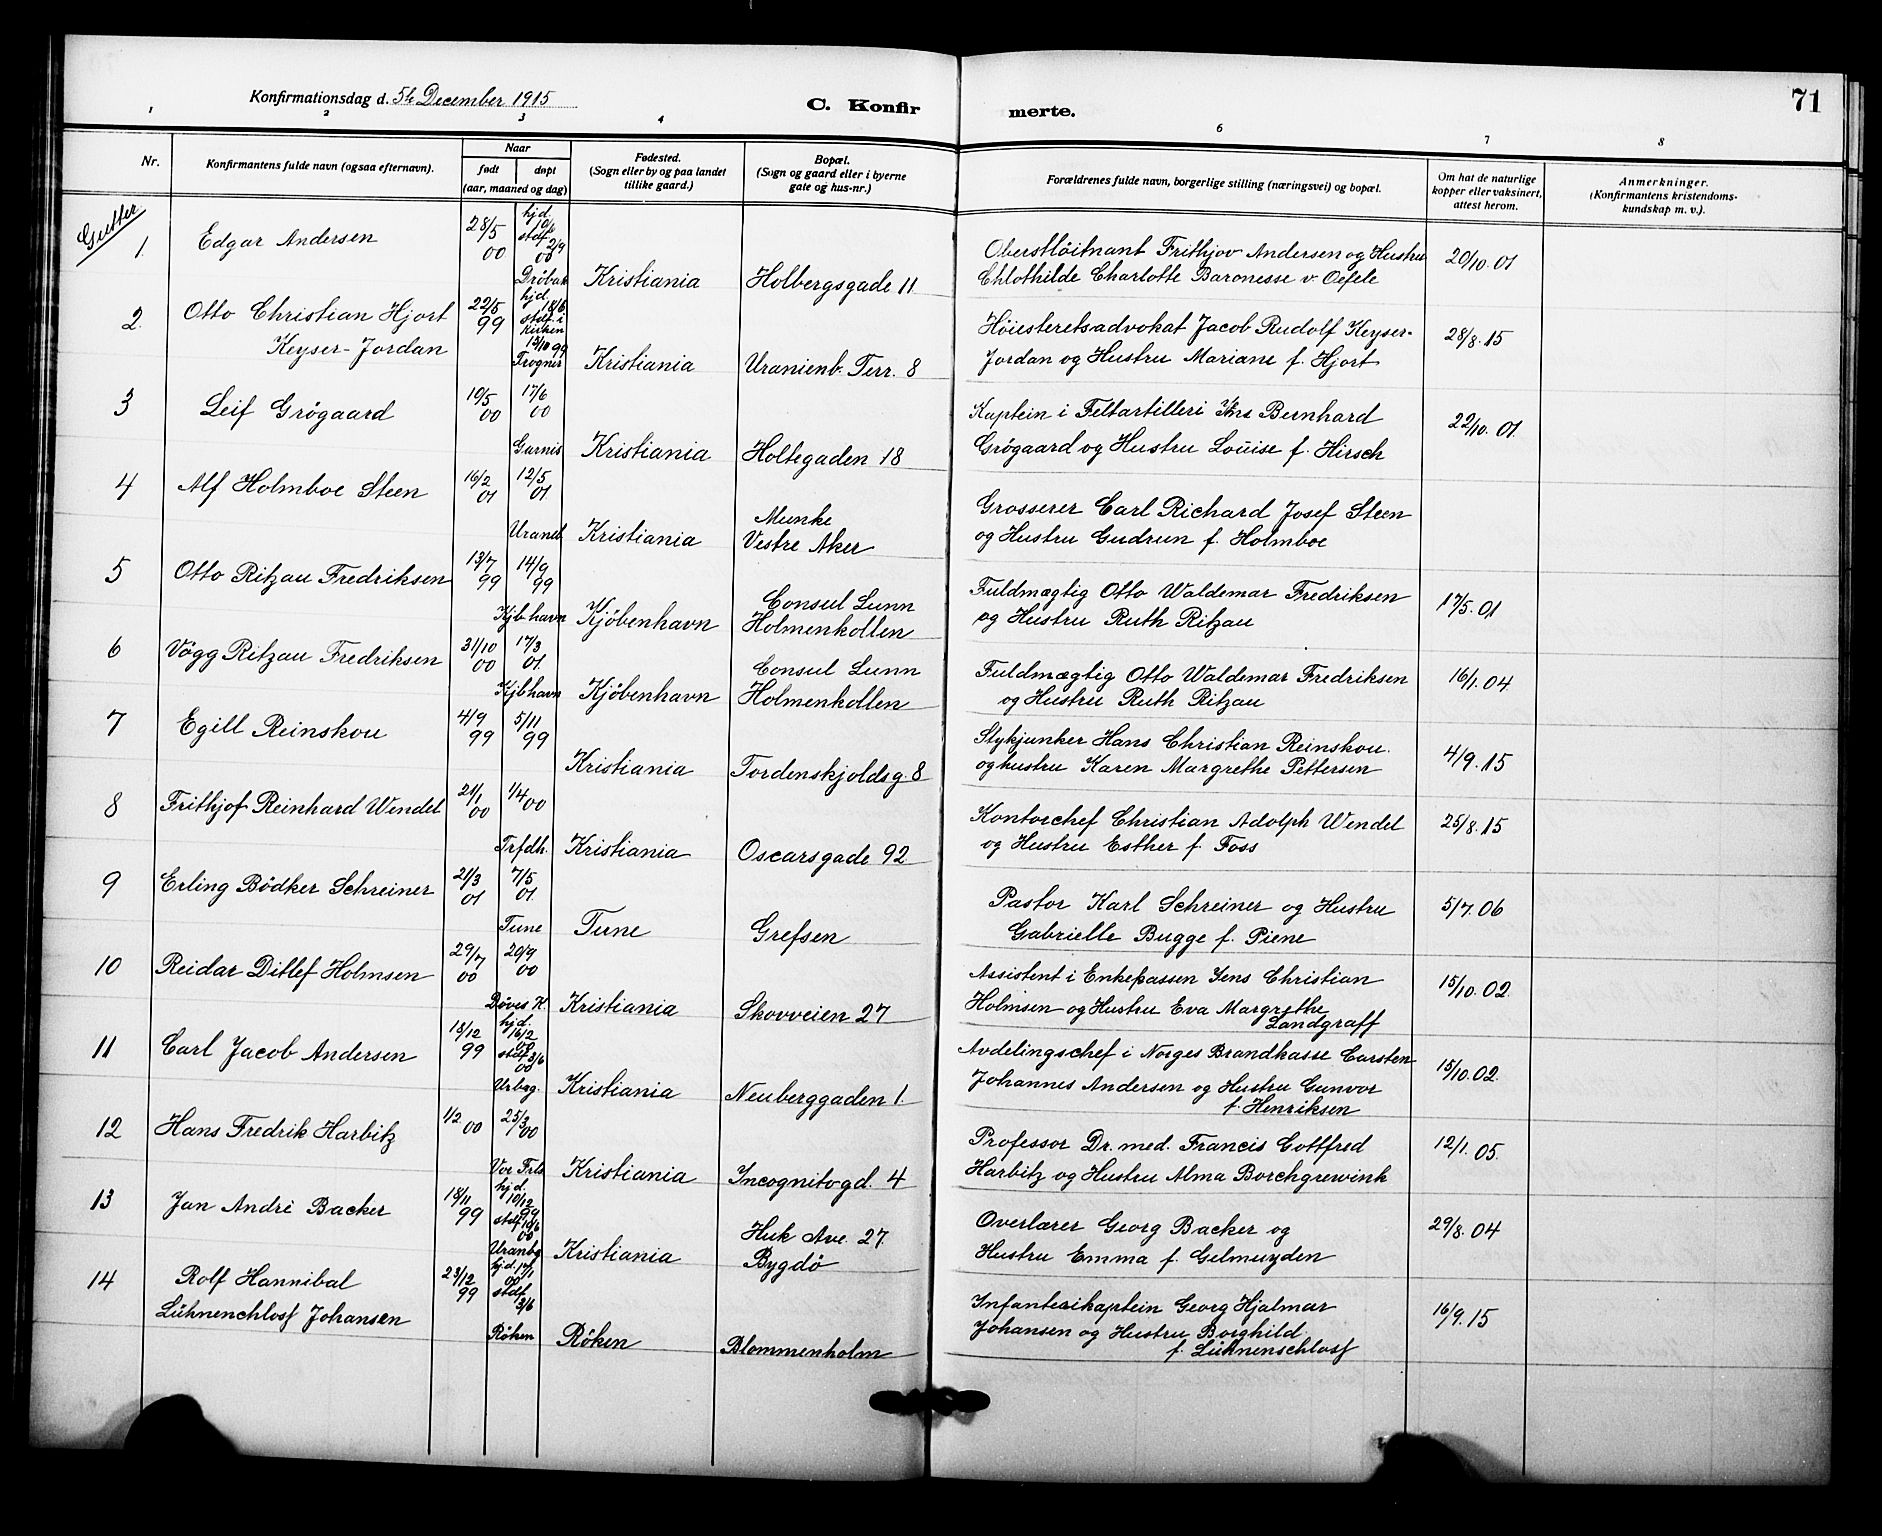 71
Konfirmationsdag d. 5te December 1915
C. Konfirmerte.
1 2 3 4 6 7 8
Nr.
Konfirmantens fulde navn (ogsaa efternavn).
Naar
født døpt
(aar, maaned og dag)
Fødested.
(Sogn eller by og paa landet
tillike gaard.)
Bopæl.
(Sogn og gaard eller i byerne
gate og hus-nr.)
Forældrenes fulde navn, borgerlige stilling (næringsvei) og bopæl.
Om hat de naturlige
kopper eller vaksinert,
attest herom.
Anmerkninger.
(Konfirmantens kristendoms-
kundskap m. v.).
Gutter.
1 Edgar Andersen
28/5 00
hjd. 10/6 stdf 2/9 00 Dröbak
Kristiania
Holbergsgade 11
Oberstlöitnant Frithjov Andersen og Hustru
Chlothilde Charlotte Baronesse v. Oefele
20/10. 01
2. Otto Christian Hjort
Keyser-Jordan
22/5 99
hjd. 18/6 stdf. i kirken 15/10 99 Frogner
Kristiania
Uranienb. Terr. 8
Höiesteretsadvokat Jacob Rudolf Keyser-
Jordan og Hustru Mariane f. Hjort
28/8. 15
3 Leif Grögaard
19/5 00
17/6 00 Garnis
Kristiania
Holtegaden 18
Kaptein i Feltartilleri Bernhard
Grögaard og Hustru Louise f. Hirsch
22/10. 01.
4 Alf Holmboe Steen
16/2 01
12/5 01 Uraneb
Kristiania
Munke
Vestre Aker
Grosserer Carl Richard Josef Steen
og Hustru Gudrun f. Holmboe
5 Otto Ritzau Fredriksen
13/7 99
14/9 99 Kjb.havn
Kjöbenhavn
Consul Lunn
Holmenkollen
Fuldmægtig Otto Waldemar Fredriksen
og Hustru Ruth Ritzau
17/5. 01
6 Vögg Ritzau Fredriksen
31/10 00
17/3 01. Kjbhavn
Kjöbenhavn
Consul Lunn
Holmenkollen
Fuldmægtig Otto Waldemar Fredriksen
og Hustru Ruth Ritzau
16/1. 04
7 Egill Reinskou
4/9 99
5/11 99
Kristiania
Tordenskjoldsg. 8
Stykjunker Hans Christian Reinskou.
og hustru Karen Margrethe Pettersen
4/9. 15
8 Frithjof Reinhard Wendel
21/1 00
1/4 00 Trfdh.
Kristiania
Oscarsgade 92
Kontorchef Christian Adolph Wendel
og Hustru Esther f. Foss
25/8. 15
9 Erling Bödker Schreiner
21/3 01
7/5 01. Tune
Tune
Grefsen
Pastor Karl Schreiner og Hustru
Gabrielle Bugge f. Piene
5/7. 06
10 Reidar Ditlef Holmsen
29/7 00
20/9 00 Döves K.
Kristiania
Skovveien 27
Assistent i Enkekassen Jens Christian
Holmsen og Hustru Eva Margrethe
Landgraff
15/10. 02.
11 Carl Jacob Andersen
18/12 99
hjd. 16/2 00 stdf 3/6 00 Urbg.
Kristiania
Neuberggaden 1.
Avdelingschef i Norges Brandkasse Carsten
Johannes Andersen og Hustru Gunvor
f. Henriksen
15/10. 02.
12 Hans Fredrik Harbitz
1/2 00
25/3 00 Vor Frls
Kristiania
Incognitogd. 4
Professor Dr. med. Francis Gottfred
Harbitz og Hustru Alma Borchgrewink
12/1. 05.
13 Jan André Backer
18/11 99
hjd. 10/12 99 stdf 10/6 00 Uranbg
Kristiania
Huk Ave. 27.
Bygdö
Overlærer Georg Backer og
Hustru Emma f. Gelmuyden
29/8. 04
14 Rolf Hannibal
Lühnenchloss Johansen
23/12 99
hjd. 17/1 00 stdf 3/6 Röken
Röken
Blommenholm
Infanterikaptein Georg Hjalmar
Johansen og Hustru Borghild
f. Lühnenschloss
16/9. 15